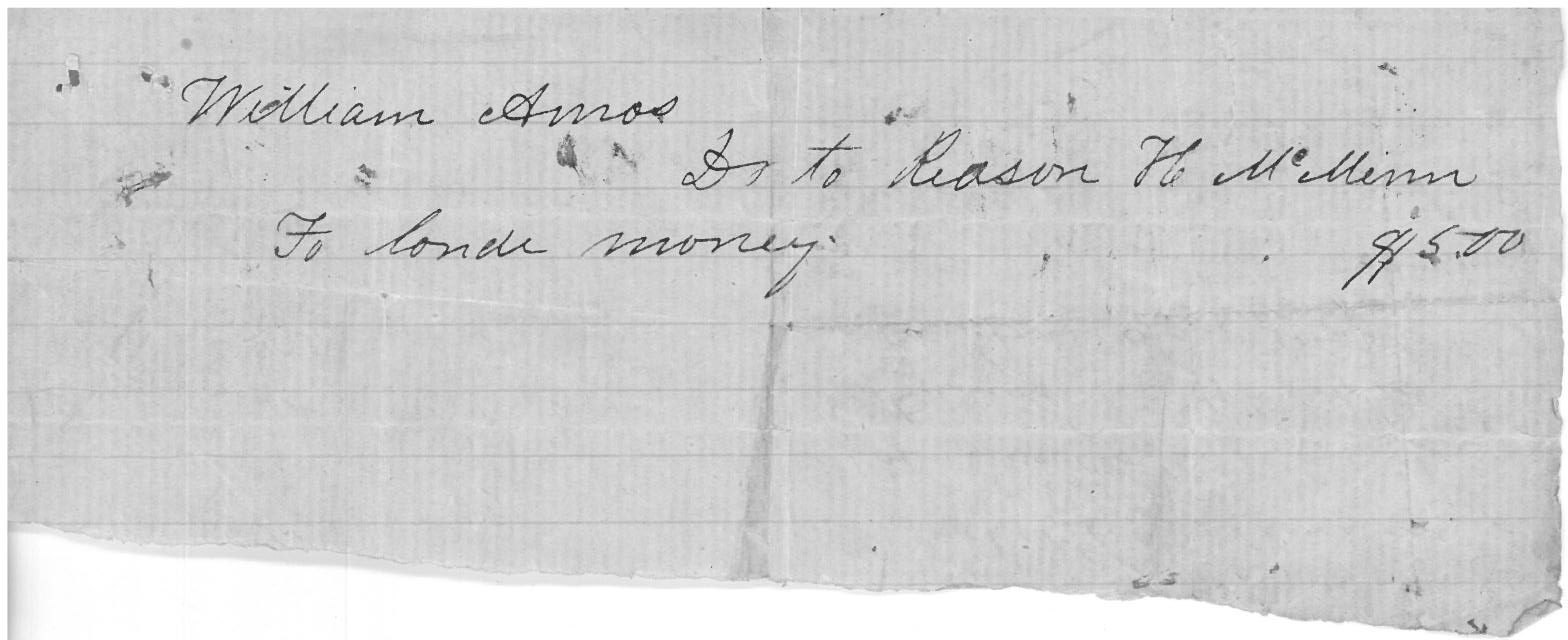 William Amos
Dr to Reason H McMinn
To londe money. $5.00